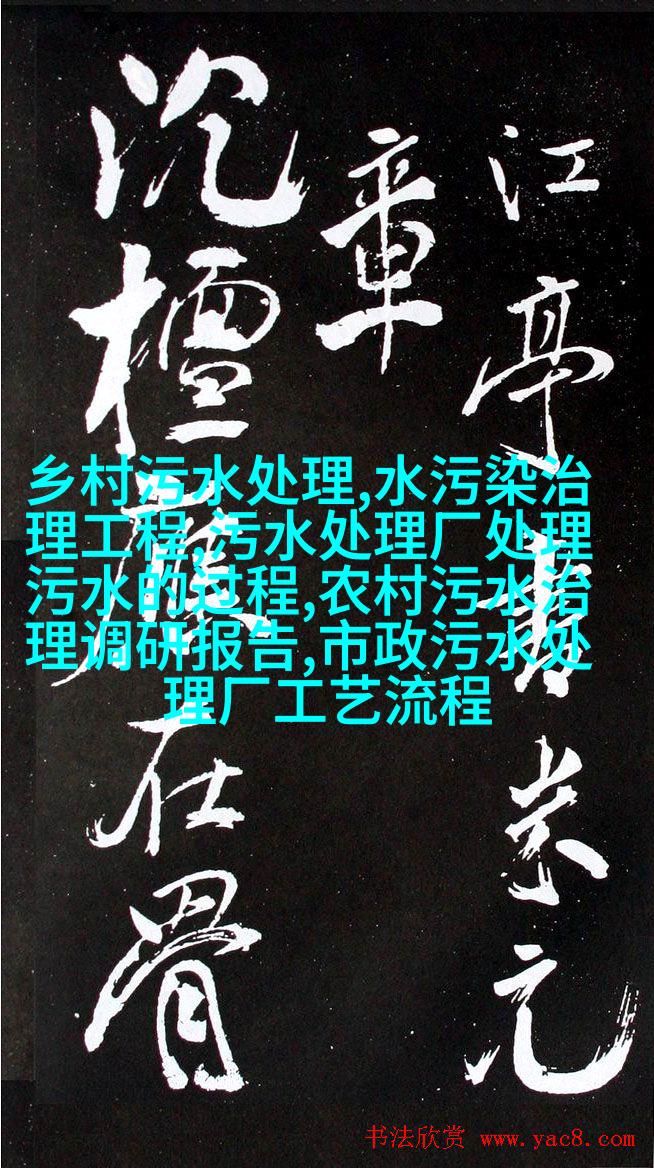 江亭書米元
章
沉檀在骨
乡村污水处理,水污染治
理工程,污水处理厂处理
污水的过程,农村污水治
理调研报告,市政污水处
理厂工艺流程
书法欣赏 www.yac8.com